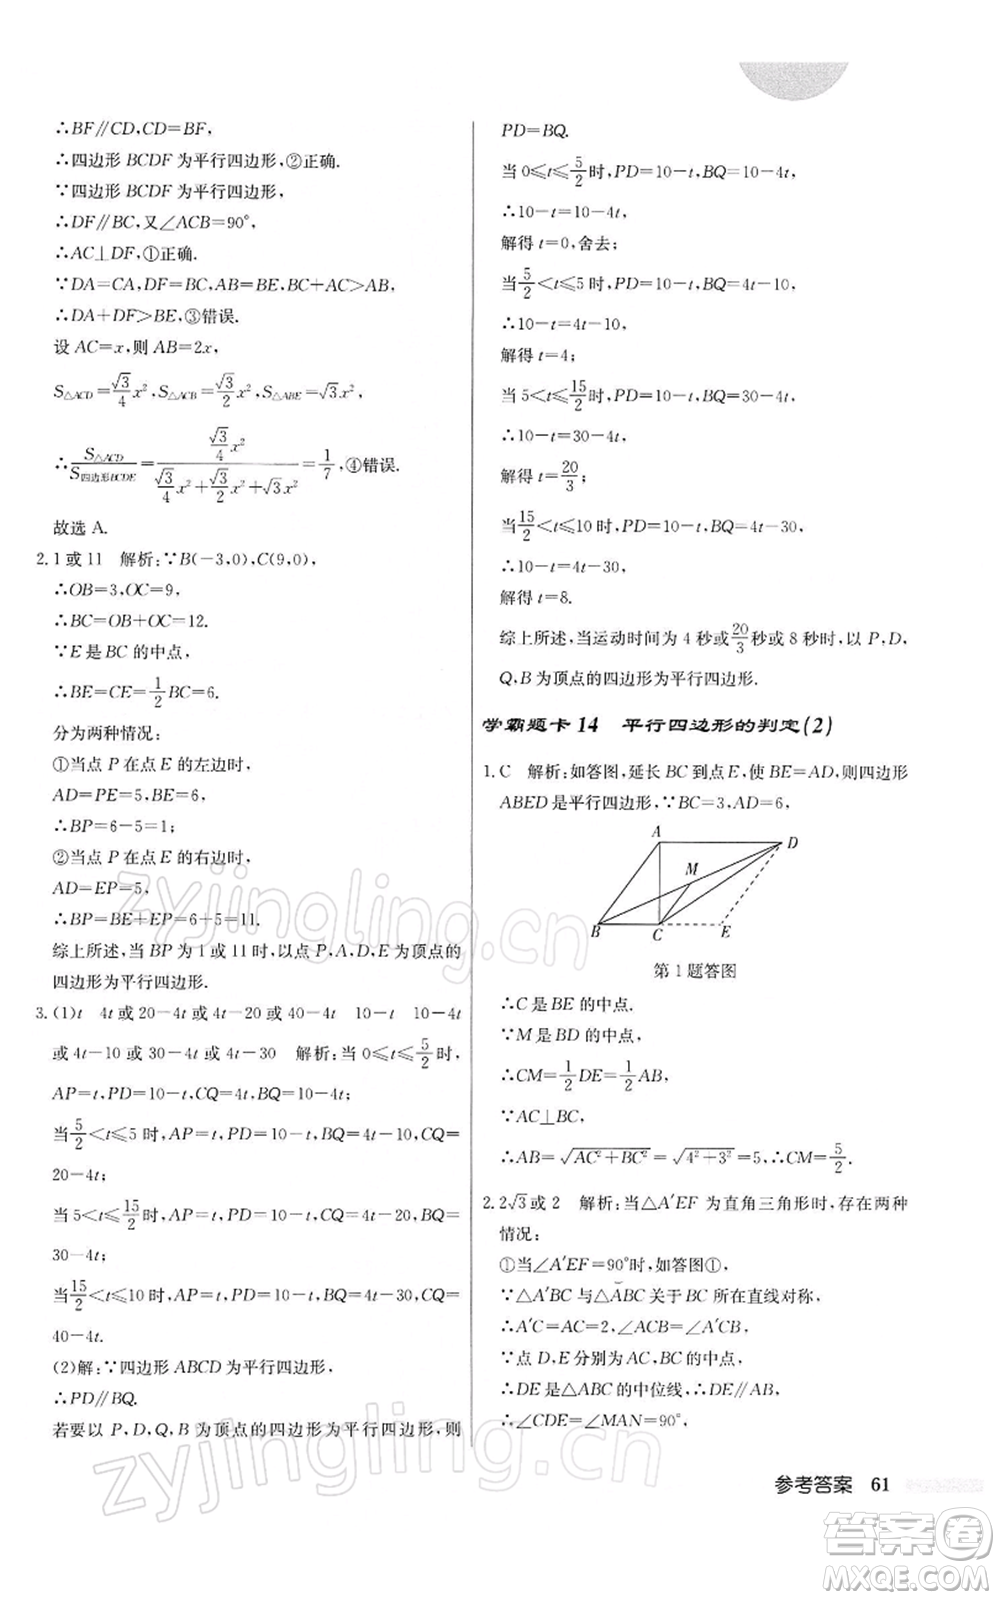 ∴BF∥CD,CD=BF,
∴四边形 BCDF 为平行四边形,②正确.
∵四边形 BCDF 为平行四边形,
∴DF∥BC,又∠ACB=90°,
∴AC⊥DF,①正确.
∵DA=CA,DF=BC,AB=BE,BC+AC>AB,
∴DA+DF>BE,③错误.
设 AC=x,则 AB=2x,
S△ACD=√3/4 x²,S△ACB=√3/2 x²,S△ABE=√3x²,
∴S△ACD/S四边形BCDE=(√3/4 x²)/(√3/4 x²+√3/2 x²+√3x²)=1/7,④错误.
故选 A.
2.1 或 11 解析:∵B(-3,0),C(9,0),
∴OB=3,OC=9,
∴BC=OB+OC=12.
∵E 是 BC 的中点,
∴BE=CE=1/2 BC=6.
分为两种情况:
①当点 P 在点 E 的左边时,
AD=PE=5,BE=6,
∴BP=6-5=1;
②当点 P 在点 E 的右边时,
AD=EP=5,
∴BP=BE+EP=6+5=11.
综上所述,当 BP 为 1 或 11 时,以点 P,A,D,E 为顶点的
四边形为平行四边形.
3.(1)t 4t 或 20-4t 或 4t-20 或 40-4t 10-t 10-4t
或 4t-10 或 30-4t 或 4t-30 解析:当 0≤t≤5/2 时,
AP=t,PD=10-t,CQ=4t,BQ=10-4t;
当 5/2<t≤5 时,AP=t,PD=10-t,BQ=4t-10,CQ=
20-4t;
当 5<t≤15/2 时,AP=t,PD=10-t,CQ=4t-20,BQ=
30-4t;
当 15/2<t≤10 时,AP=t,PD=10-t,BQ=4t-30,CQ=
40-4t.
(2)解:∵四边形 ABCD 为平行四边形,
∴PD∥BQ.
若要以 P,D,Q,B 为顶点的四边形为平行四边形,则
PD=BQ.
当 0≤t≤5/2 时,PD=10-t,BQ=10-4t,
∴10-t=10-4t,
解得 t=0,舍去;
当 5/2<t≤5 时,PD=10-t,BQ=4t-10,
∴10-t=4t-10,
解得 t=4;
当 5<t≤15/2 时,PD=10-t,BQ=30-4t,
∴10-t=30-4t,
解得 t=20/3;
当 15/2<t≤10 时,PD=10-t,BQ=4t-30,
∴10-t=4t-30,
解得 t=8.
综上所述,当运动时间为 4 秒或 20/3 秒或 8 秒时,以 P,D,
Q,B 为顶点的四边形为平行四边形.
学霸题卡 14 平行四边形的判定(2)
1.C 解析:如答图,延长 BC 到点 E,使 BE=AD,则四边形
ABED 是平行四边形,∵BC=3,AD=6,
A
D
M
B
C
E
第 1 题答图
∴C 是 BE 的中点.
∵M 是 BD 的中点,
∴CM=1/2 DE=1/2 AB,
∵AC⊥BC,
∴AB=√(AC²+BC²)=√(4²+3²)=5,∴CM=5/2.
2.2√3 或 2 解析:当△A′EF 为直角三角形时,存在两种
情况:
①当∠A′EF=90°时,如答图①,
∵△A′BC 与△ABC 关于 BC 所在直线对称,
∴A′C=AC=2,∠ACB=∠A′CB,
∵点 D,E 分别为 AC,BC 的中点,
∴DE 是△ABC 的中位线,∴DE∥AB,
∴∠CDE=∠MAN=90°,
参考答案 61
zyjingling.cn
zyjingling.cn
答案卷
MXQE.COM